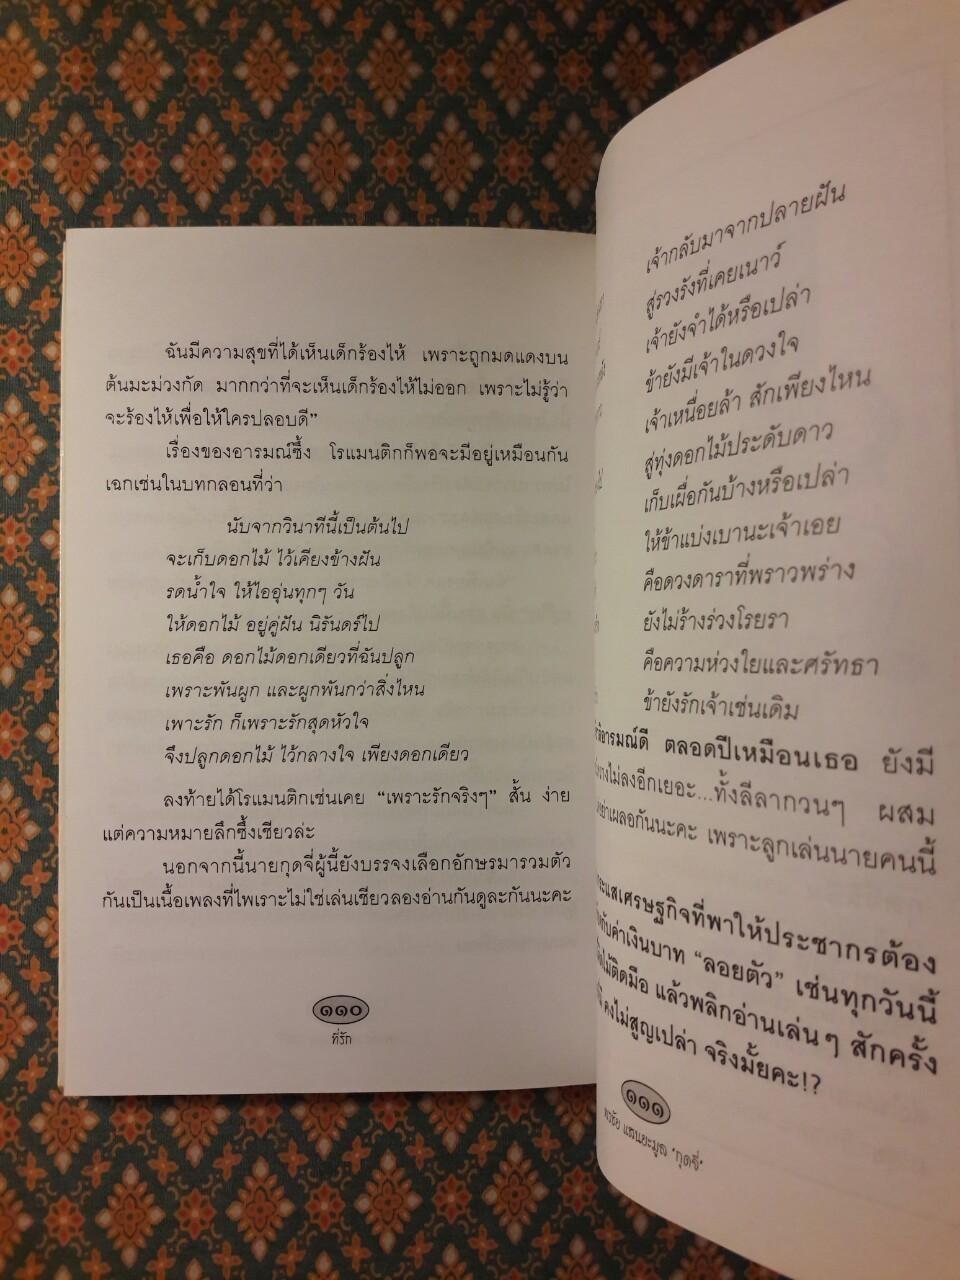 ฉันมีความสุขที่ได้เห็นเด็กร้องไห้ เพราะถูกมดแดงบน
ต้นมะม่วงกัด มากกว่าที่จะเห็นเด็กร้องไห้ไม่ออก เพราะไม่รู้ว่า
จะร้องไห้เพื่อให้ใครปลอบดี”
เรื่องของอารมณ์ซึ้ง โรแมนติกก็พอจะมีอยู่เหมือนกัน
เฉกเช่นในบทกลอนที่ว่า
นับจากวินาทีนี้เป็นต้นไป
จะเก็บดอกไม้ ไว้เคียงข้างฝัน
รดน้ำใจ ให้ไออุ่นทุกๆ วัน
ให้ดอกไม้ อยู่คู่ฝัน นิรันดร์ไป
เธอคือ ดอกไม้ดอกเดียวที่ฉันปลูก
เพราะพันผูก และผูกพันกว่าสิ่งไหน
เพาะรัก ก็เพราะรักสุดหัวใจ
จึงปลูกดอกไม้ ไว้กลางใจ เพียงดอกเดียว
ลงท้ายได้โรแมนติกเช่นเคย “เพราะรักจริงๆ” สั้น ง่าย
แต่ความหมายลึกซึ้งเชียวล่ะ
นอกจากนี้นายกุดจี่ผู้นี้ยังบรรจงเลือกอักษรมารวมตัว
กันเป็นเนื้อเพลงที่ไพเราะไม่ใช่เล่นเชียวลองอ่านกันดูละกันนะคะ
๑๑๐
ที่รัก
เจ้ากลับมาจากปลายฝัน
สู่รวงรังที่เคยเนาว์
เจ้ายังจำได้หรือเปล่า
ข้ายังมีเจ้าในดวงใจ
เจ้าเหนื่อยล้า สักเพียงไหน
สู่ทุ่งดอกไม้ประดับดาว
เก็บเผื่อกันบ้างหรือเปล่า
ให้ข้าแบ่งเบานะเจ้าเอย
คือดวงดาราที่พราวพร่าง
ยังไม่ร้างร่วงโรยรา
คือความห่วงใยและศรัทธา
ข้ายังรักเจ้าเช่นเดิม
อารมณ์ดี ตลอดปีเหมือนเธอ ยังมี
วางไม่ลงอีกเยอะ...ทั้งลีลากวนๆ ผสม
อย่าเผลอกันนะคะ เพราะลูกเล่นนายคนนี้
กระแสเศรษฐกิจที่พาให้ประชากรต้อง
กับค่าเงินบาท “ลอยตัว” เช่นทุกวันนี้
ไม้ติดมือ แล้วพลิกอ่านเล่นๆ สักครั้ง
คงไม่สูญเปล่า จริงมั้ยคะ!?
๑๑๑
พรชัย แสนยะมูล "กุดจี่"